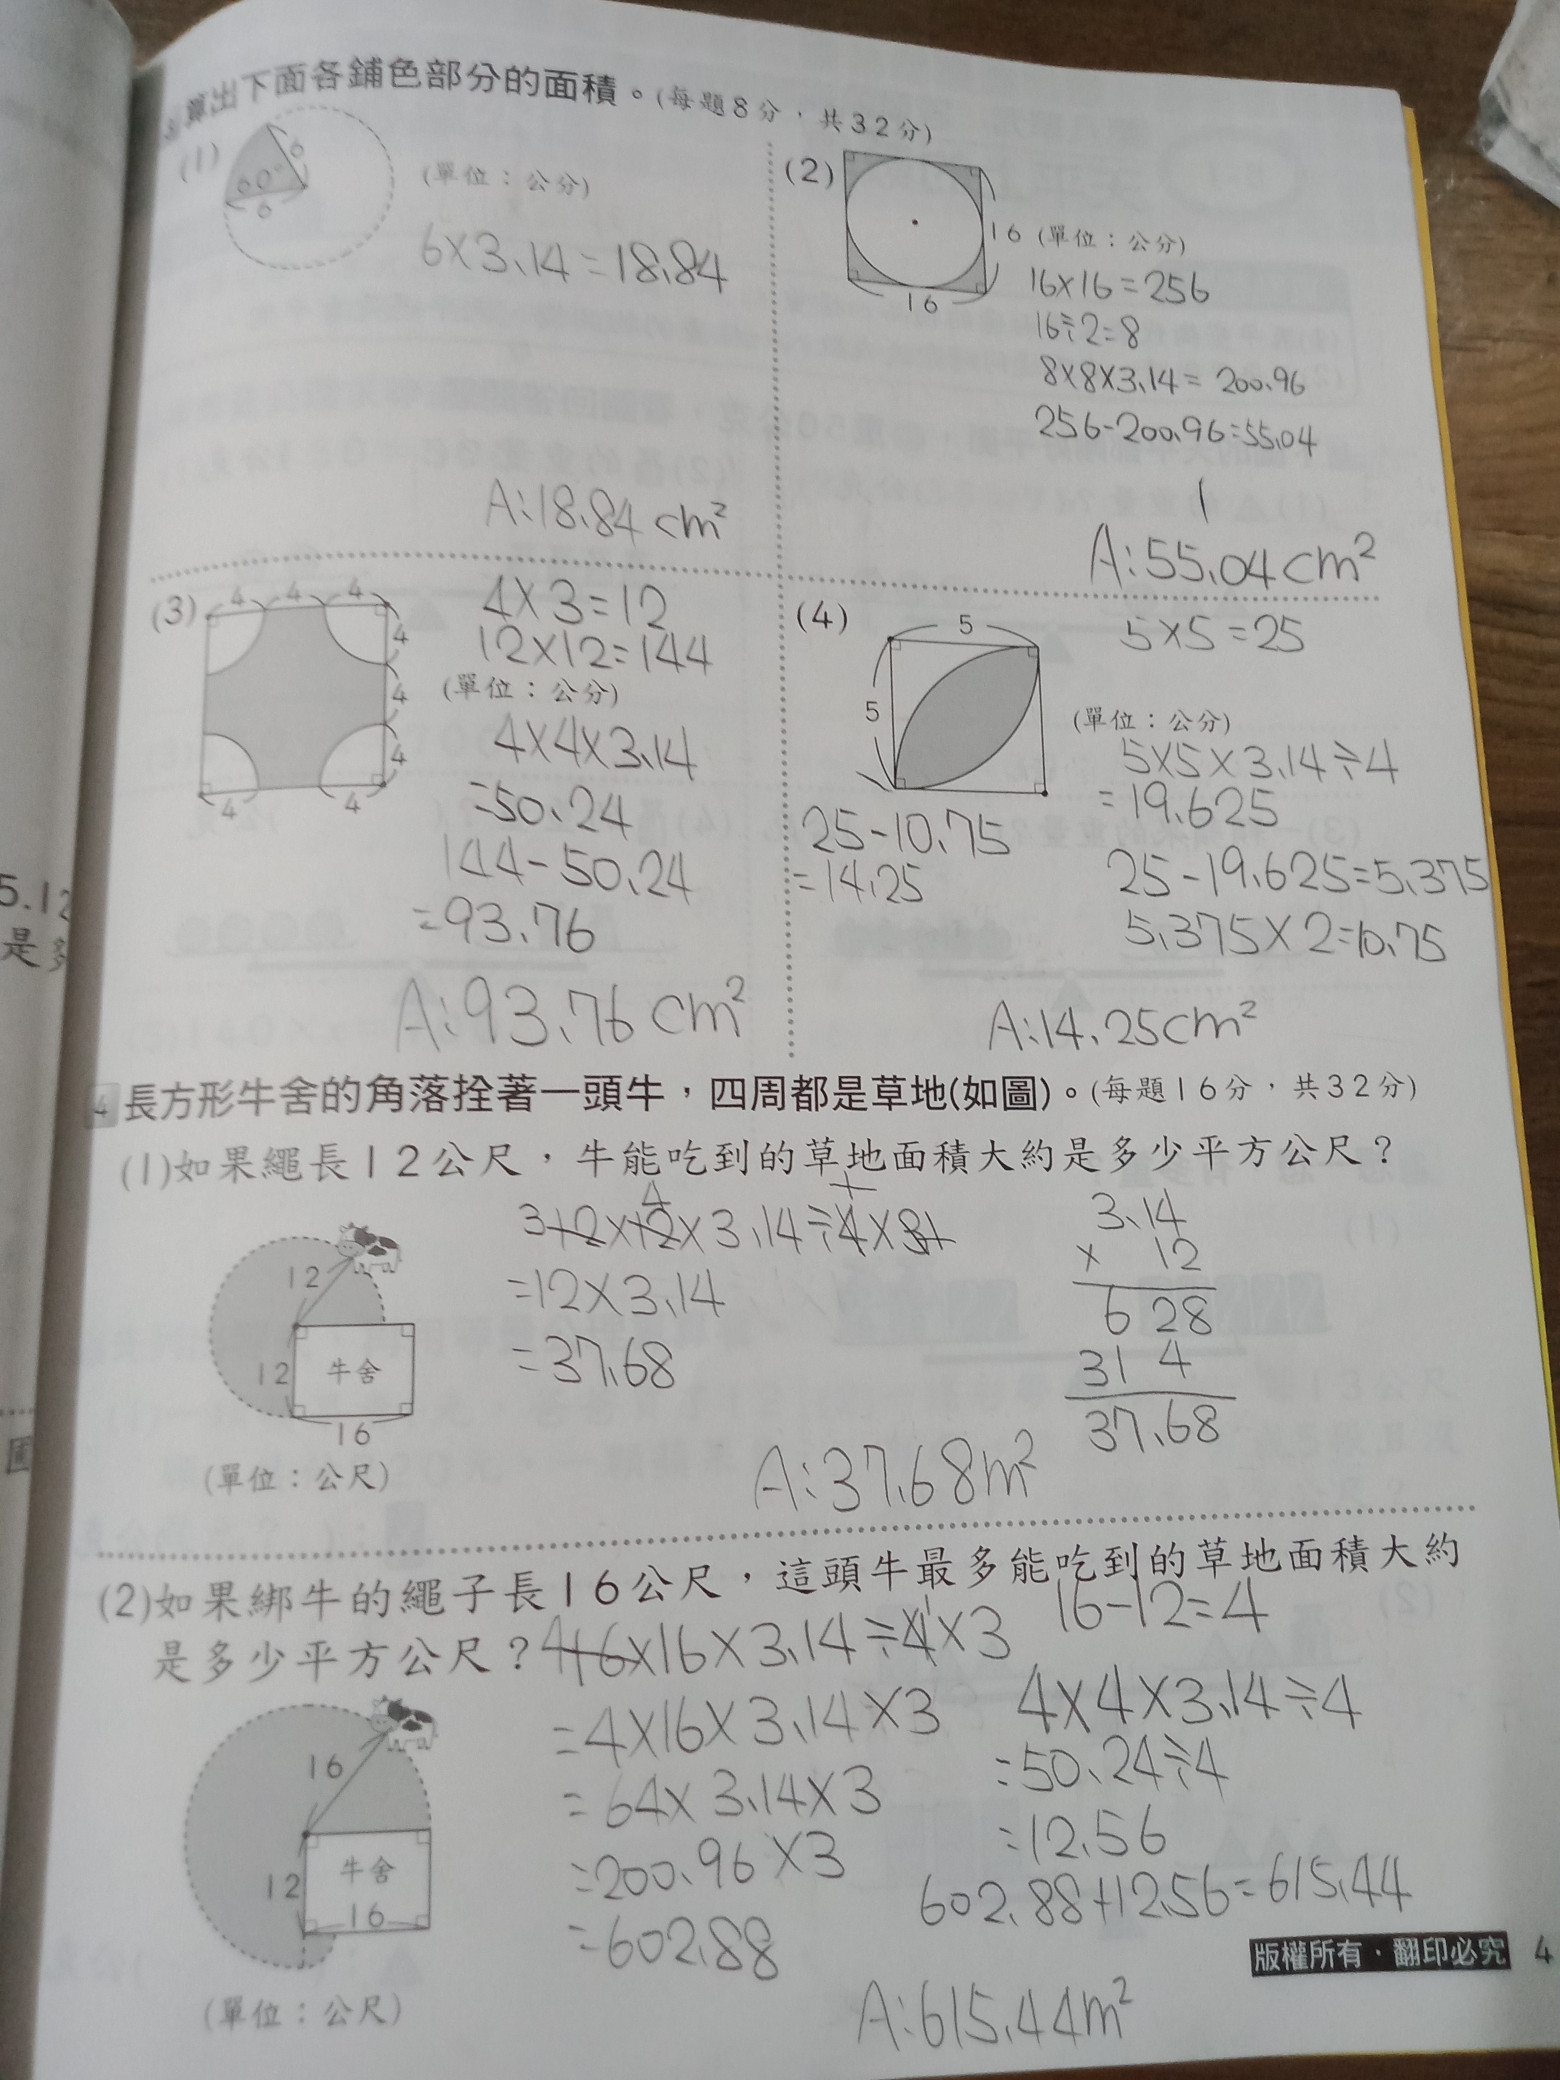 算出下面各鋪色部分的面積。(每題8分，共32分)
(1)
6
60°
6
(單位：公分)
6×3.14=18.84
A:18.84cm²
(2)
16
16
(單位：公分)
16×16=256
16÷2=8
8×8×3.14=200.96
256-200.96=55.04
A:55.04cm²
(3)
4 4 4
4
4
4
4 4
4×3=12
12×12=144
(單位：公分)
4×4×3.14
=50.24
144-50.24
=93.76
A:93.76cm²
(4)
5
5
5×5=25
(單位：公分)
5×5×3.14÷4
=19.625
25-19.625=5.375
5.375×2=10.75
25-10.75
=14.25
A:14.25cm²
4 長方形牛舍的角落拴著一頭牛，四周都是草地(如圖)。(每題16分，共32分)
(1)如果繩長12公尺，牛能吃到的草地面積大約是多少平方公尺？
12
12
牛舍
16
(單位：公尺)
×3.14÷
=12×3.14
=37.68
3.14
× 12
6 28
31 4
37.68
A:37.68m²
(2)如果綁牛的繩子長16公尺，這頭牛最多能吃到的草地面積大約
是多少平方公尺？
16
12
牛舍
16
(單位：公尺)
16×16×3.14÷4×3
=4×16×3.14×3
=64×3.14×3
=200.96×3
=602.88
16-12=4
4×4×3.14÷4
=50.24÷4
=12.56
602.88+12.56=615.44
A:615.44m²
版權所有‧翻印必究 4
5.12
是多